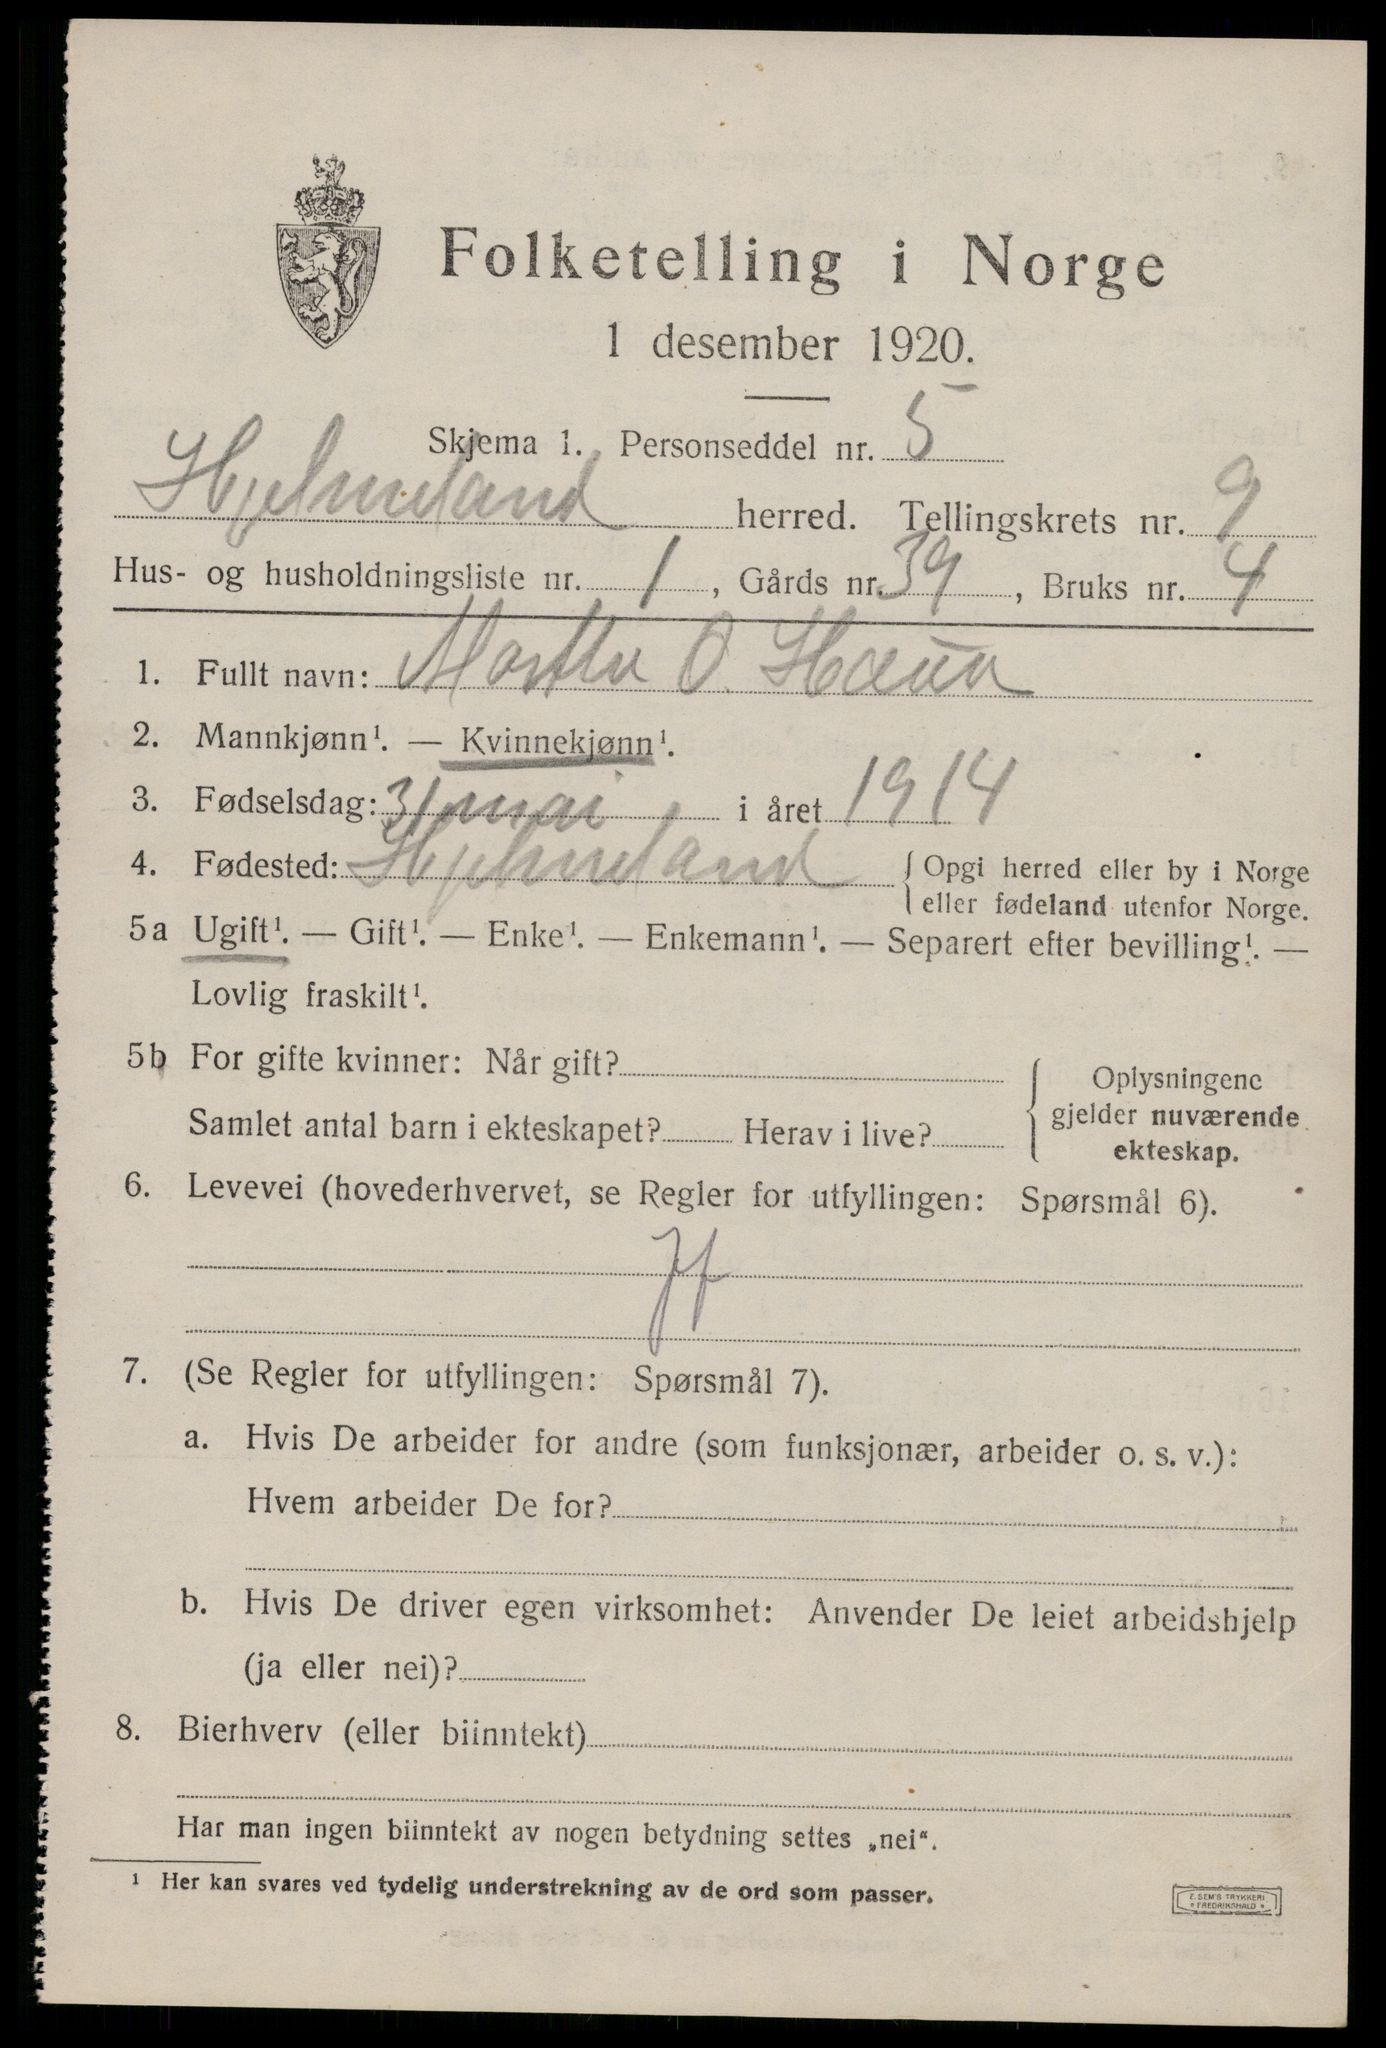 Folketelling i Norge
1 desember 1920.
Skjema 1. Personseddel nr. 5
Hjelmeland herred. Tellingskrets nr. 9
Hus- og husholdningsliste nr. 1, Gårds nr. 39, Bruks nr. 4
1. Fullt navn: Martha O.
2. Mannkjønn¹. — Kvinnekjønn¹.
3. Fødselsdag: 31 mai i året 1914
4. Fødested: Hjelmeland { Opgi herred eller by i Norge
eller fødeland utenfor Norge.
5a Ugift¹. — Gift¹. — Enke¹. — Enkemann¹. — Separert efter bevilling¹. —
Lovlig fraskilt¹.
5b For gifte kvinner: Når gift?
Samlet antal barn i ekteskapet? Herav i live?
Oplysningene
gjelder nuværende
ekteskap.
6. Levevei (hovederhvervet, se Regler for utfyllingen: Spørsmål 6).
7. (Se Regler for utfyllingen: Spørsmål 7).
a. Hvis De arbeider for andre (som funksjonær, arbeider o. s. v.):
Hvem arbeider De for?
b. Hvis De driver egen virksomhet: Anvender De leiet arbeidshjelp
(ja eller nei)?
8. Bierhverv (eller biinntekt)
Har man ingen biinntekt av nogen betydning settes „nei“.
¹ Her kan svares ved tydelig understrekning av de ord som passer.
E. SEM'S TRYKKERI
* FREDRIKSHALD *